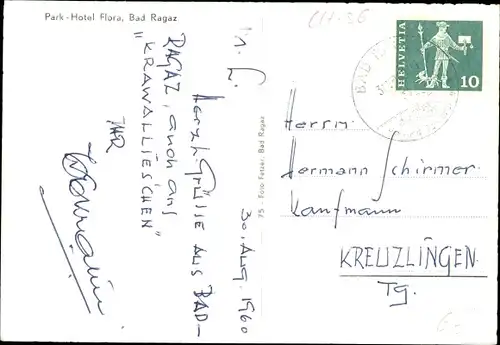 Park-Hotel Flora, Bad Ragaz
CH-36
30. AUG. 1960
HERZL. GRÜSSE AUS BAD-
RAGAZ, auch ans
"KRAWALLIESCHEN"
IHR
75 - Foto Fetzer, Bad Ragaz
BAD
HELVETIA
10
Herrn
Hermann Schirmer
Kaufmann
KREUZLINGEN
Tg.